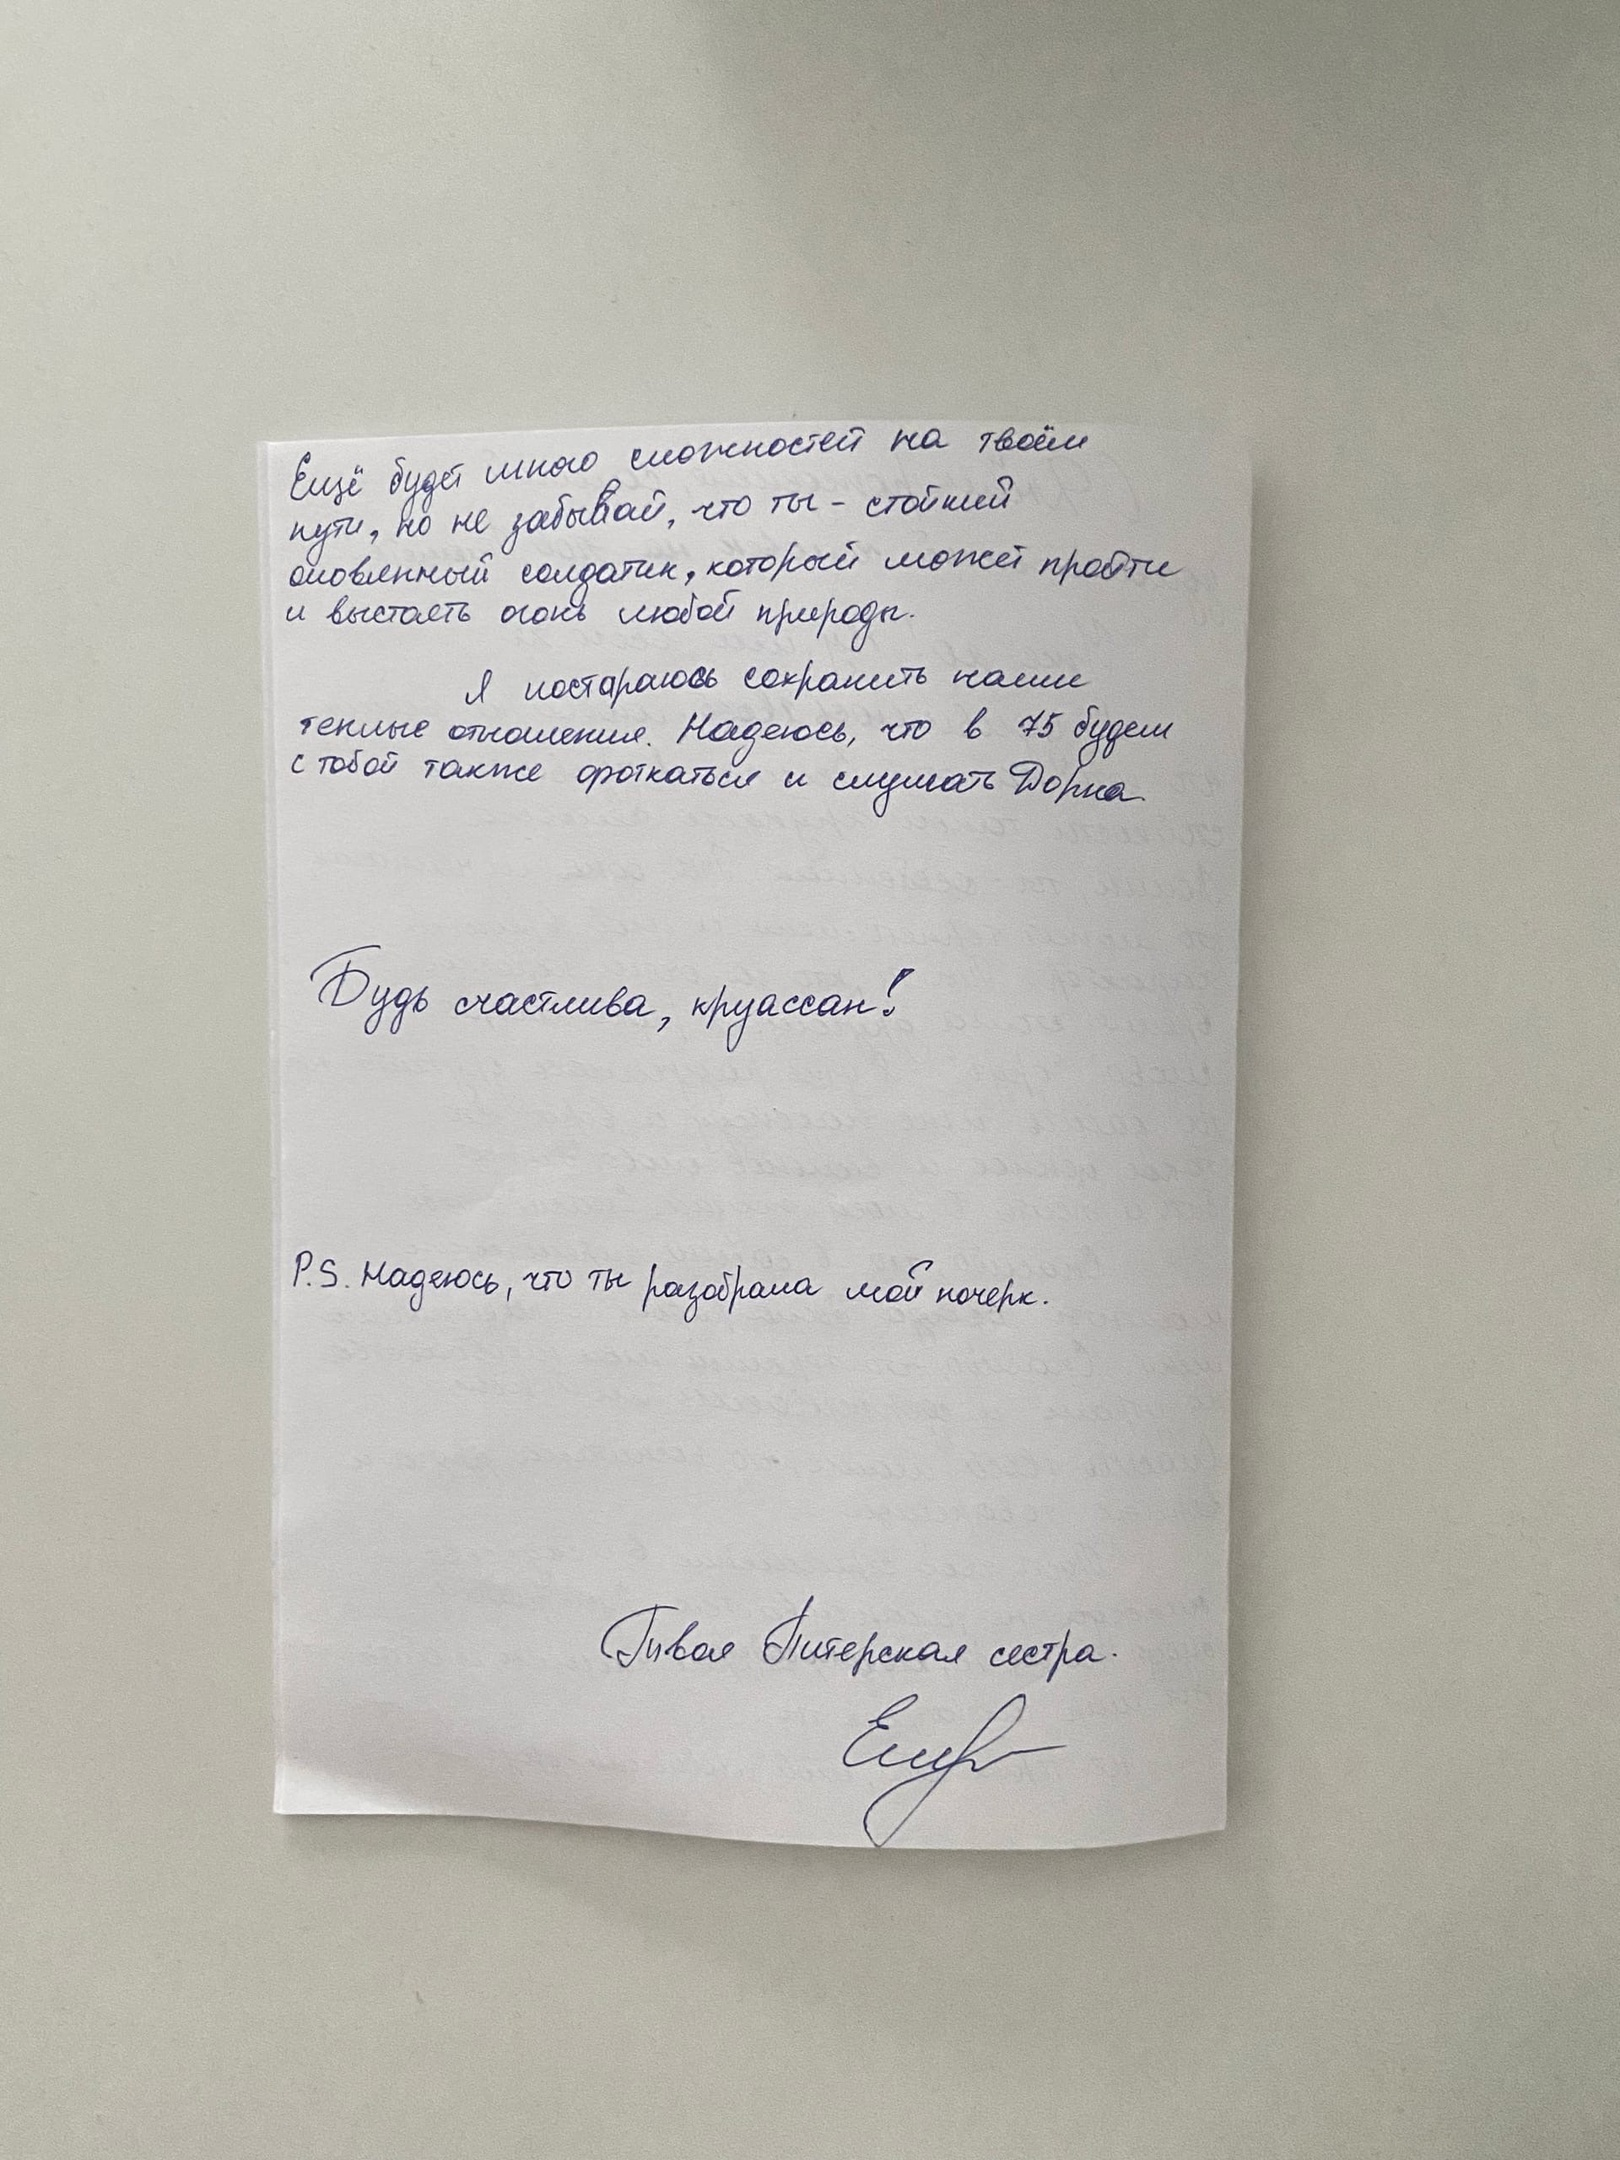 Ещё будет много сложностей на твоём
пути, но не забывай, что ты - стойкий
оловянный солдатик, который может пройти
и выстоять огонь любой природы.
Я постараюсь сохранить наши
теплые отношения. Надеюсь, что в 75 будем
с тобой также фоткаться и слушать Дорна.
Будь счастлива, круассан!
P.S. Надеюсь, что ты разобрала мой почерк.
Твоя Питерская сестра.